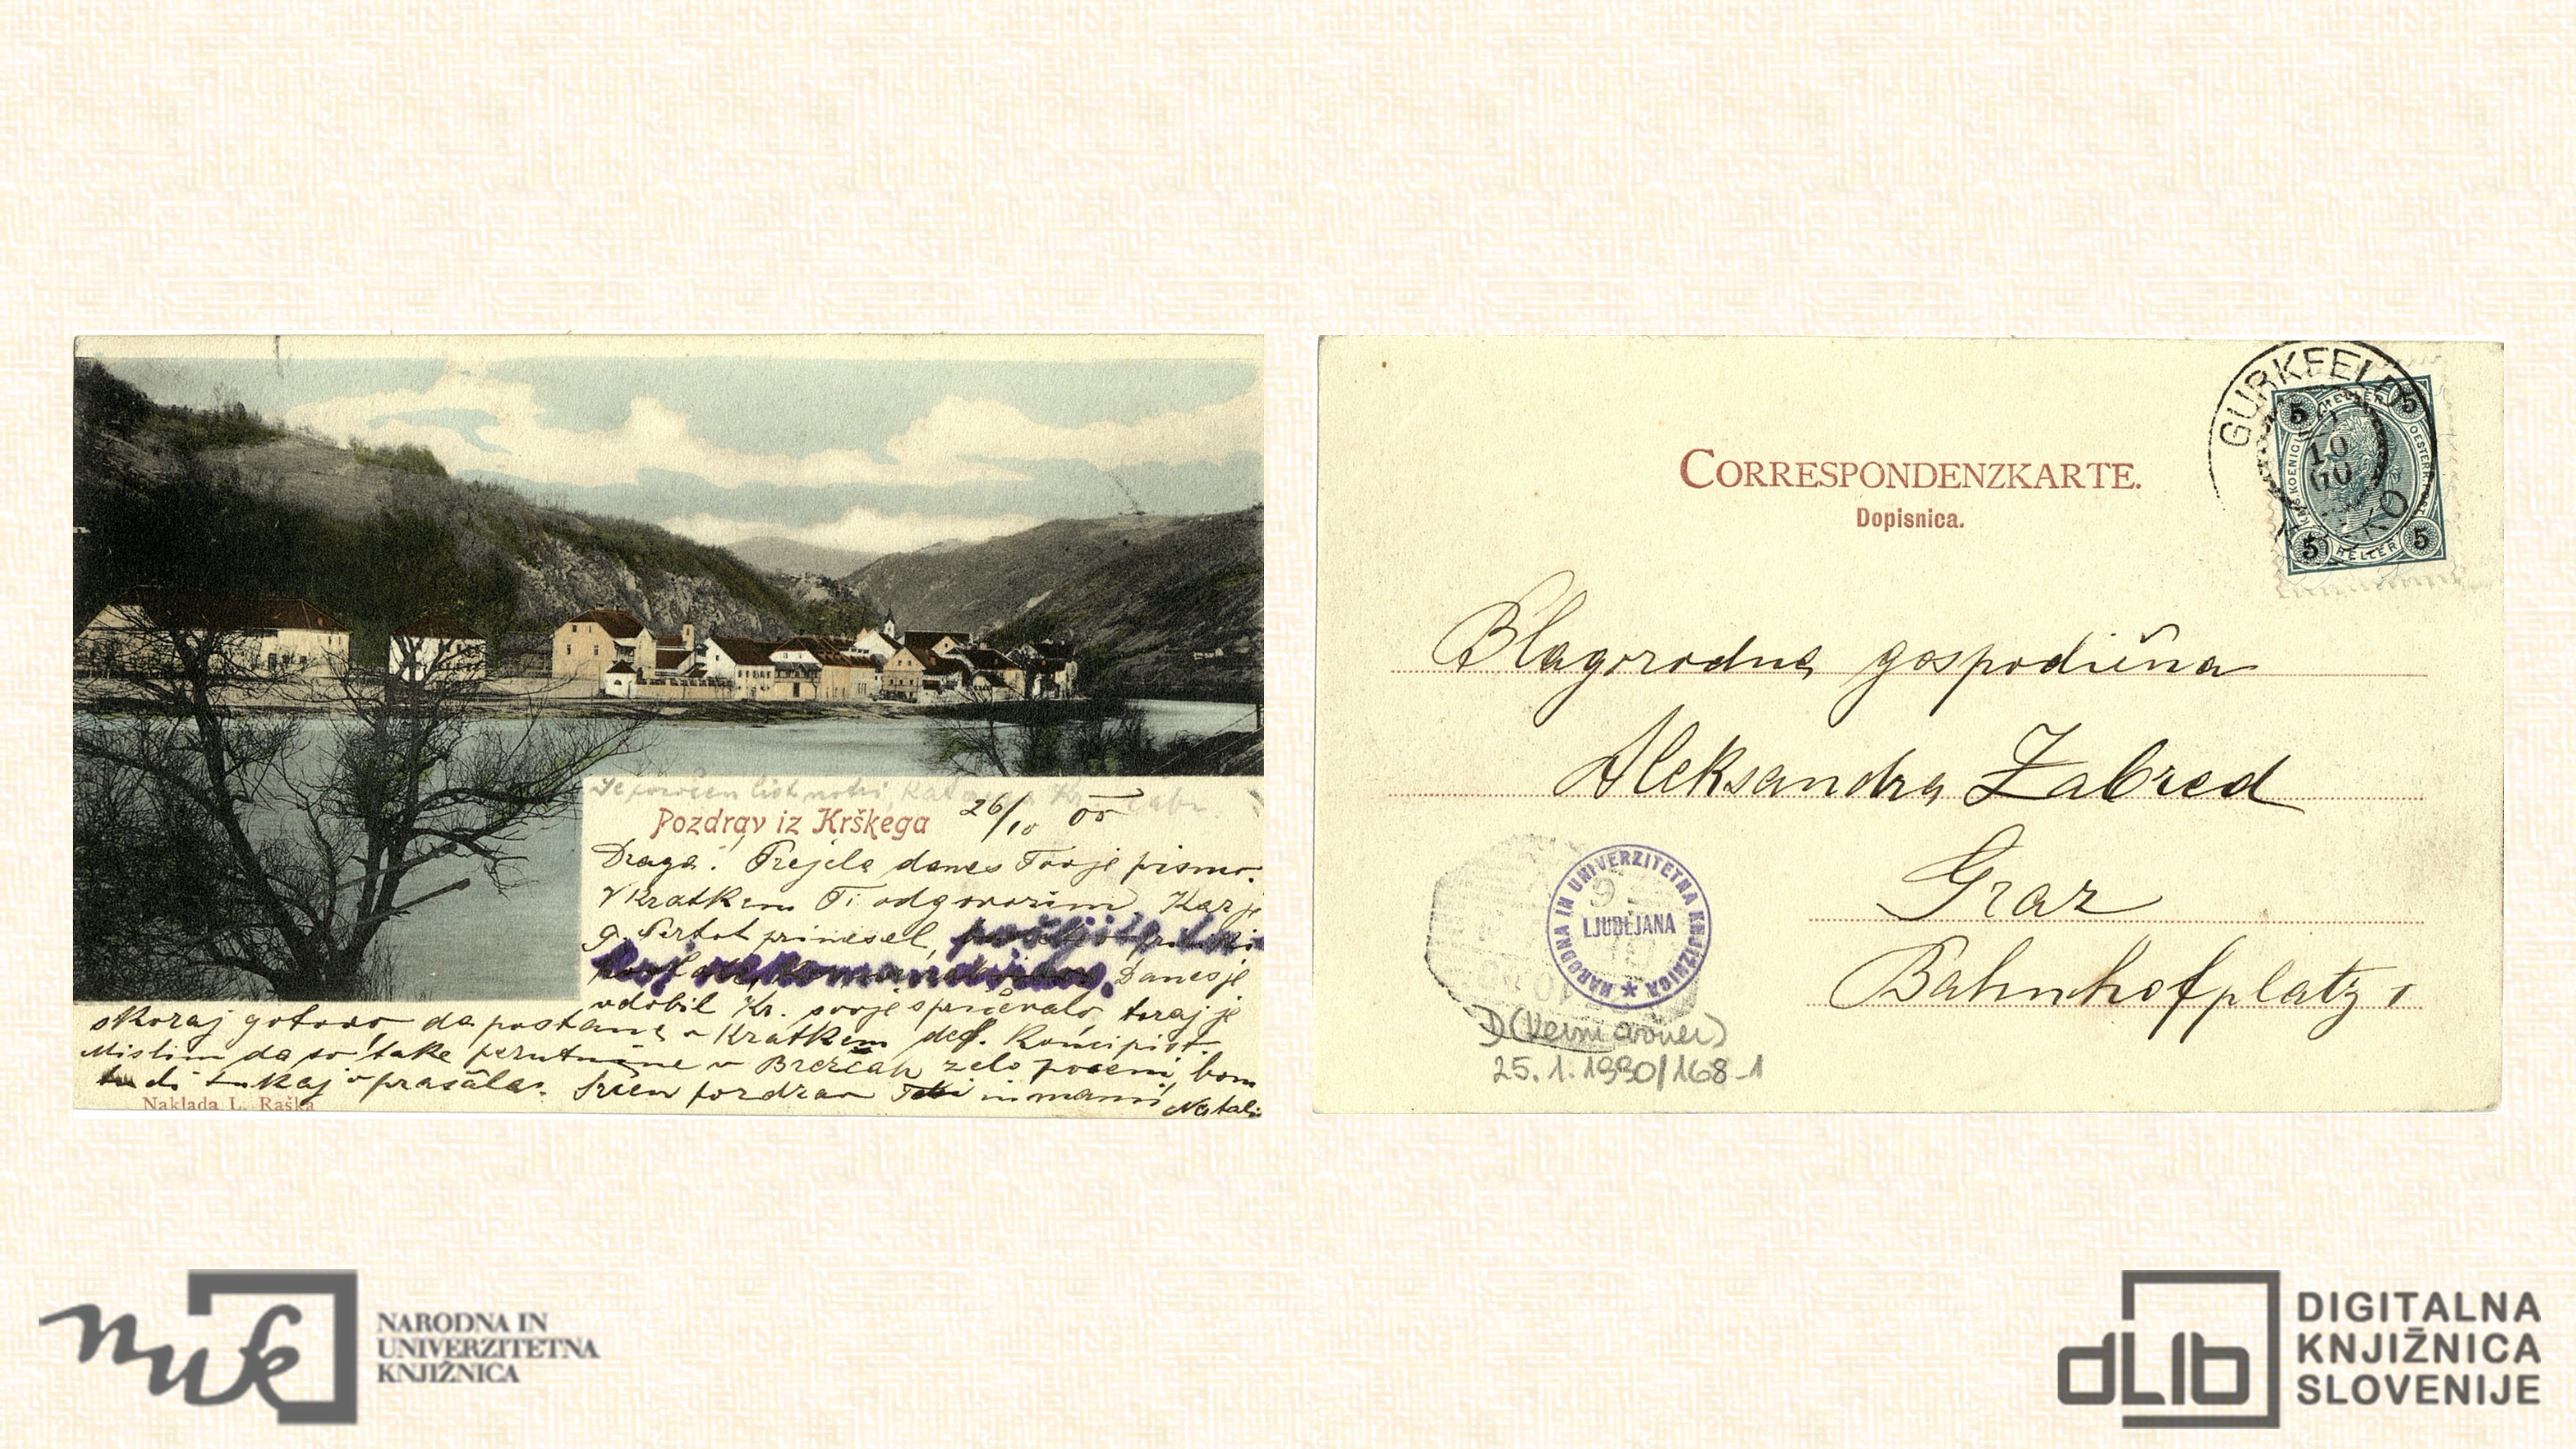 Pozdrav iz Krškega 26/10 00
Draga! Prejela danes Tvoje pismo.
V kratkem Ti odgovorim. Kar je
g. Pertot prinesel,
Danes je
udobil Kr. svoje spričevalo, toraj je
skoraj gotovo, da postane v kratkem def. koncipist.
Mislim da so take perutnine v Brežcah zelo poceni, bom
tudi tukaj vprašala. Srčen pozdrav Tebi in mami, Natali
Naklada L. Raška
CORRESPONDENZKARTE.
Dopisnica.
GURKFELD
10
00
5 HELLER 5
5 HELLER 5
Blagorodna gospodična
Aleksandra Zabred
Graz
Bahnhofplatz 1
NARODNA IN UNIVERZITETNA KNJIŽNICA
LJUBLJANA
25.1.1990/168-1
nuk
NARODNA IN
UNIVERZITETNA
KNJIŽNICA
dLib
DIGITALNA
KNJIŽNICA
SLOVENIJE